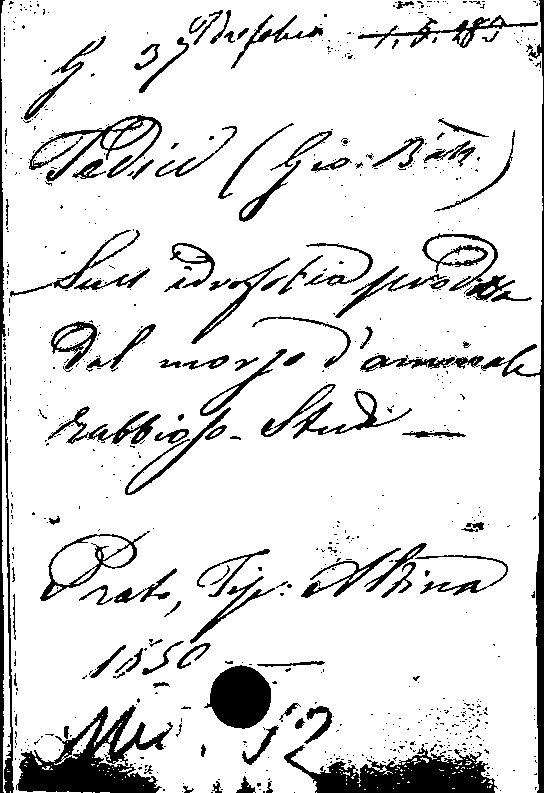 G. 3 Idrofobia 1. 5. 283
Tedici (Gio: Batt.)
Sull idrofobia prodotta
dal morso d'animale
rabbioso. Studi —
Prato, Tip: Aldina
1850
12